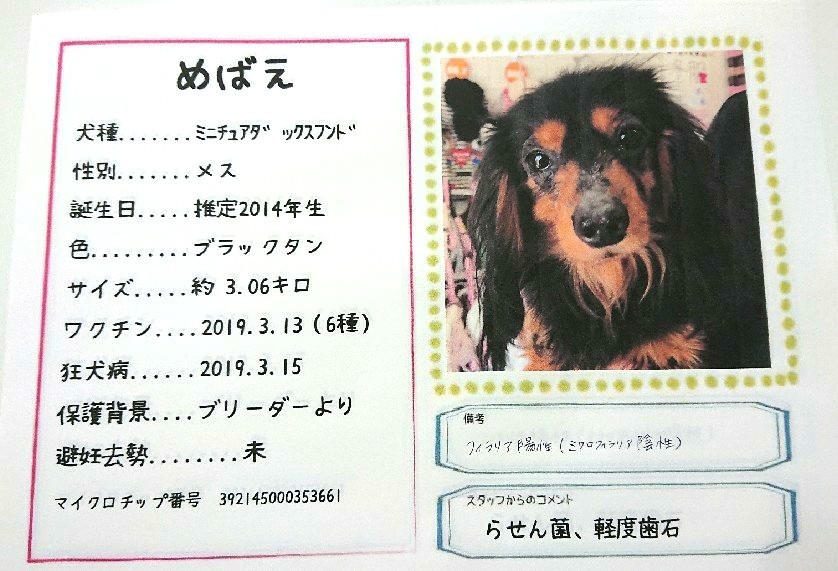 めばえ
犬種.......ミニチュアダックスフンド
性別.......メス
誕生日.....推定2014年生
色.........ブラックタン
サイズ.....約 3.06キロ
ワクチン....2019.3.13（6種）
狂犬病......2019.3.15
保護背景....ブリーダーより
避妊去勢........未
マイクロチップ番号 392145000353661
備考
フィラリア陽性（ミクロフィラリア陰性）
スタッフからのコメント
らせん菌、軽度歯石